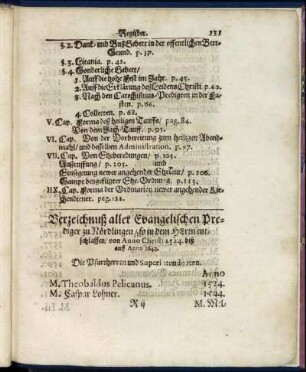 Register. 131
§. 2. Danck- und Buß Gebett in der offentlichen Bett-
Stund. p. 37.
§. 3. Litania. p. 42.
§. 4. Sonderliche Gebett/
1. Auff die hohe Fest im Jahr. p. 45.
2. Auff die Erklärung deß Leidens Christi. p. 62.
3. Nach den Catechismus-Predigten in der Fa-
sten. p. 66.
4. Collecten. p. 68.
V. Cap. Forma deß heiligen Tauffs/ pag. 84.
Von dem Jach-Tauff. p. 95.
VI. Cap. Von der Vorbereitung zum heiligen Abend-
mahl/ und desselben Administration. p. 97.
VII. Cap. Von Ehebetedingen/ p. 103.
Außruffung/ p. 105. und
Einsegnung newer angehender Eheleut/ p. 108.
Sampt beygefügter Ehe-Ordnung. p. 113.
IIX. Cap. Forma der Ordination newer angehender Kir-
chendiener. pag. 121.
Verzeichnuß aller Evangelischen Pre-
diger zu Nördlingen/ so in dem HErrn ent-
schlaffen/ von Anno Christi 1524. biß
auff Anno 1648.
Die Pfarrherren und Superintendenten.
Anno
M. Theobaldus Pelicanus. 1524.
M. Caspar Lohner. 1544.
R ij M. M: